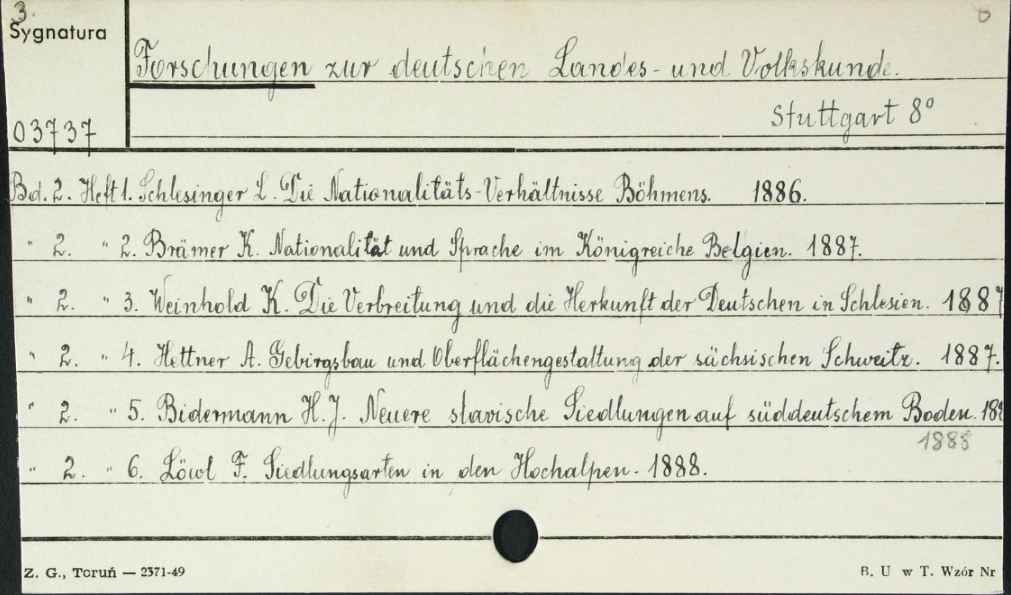 3.
Sygnatura
Forschungen zur deutschen Landes- und Volkskunde.
Stuttgart 8°
03737
Bd. 2. Heft 1. Schlesinger L. Die Nationalitäts-Verhältnisse Böhmens. 1886.
" 2. " 2. Brämer K. Nationalität und Sprache im Königreiche Belgien. 1887.
" 2. " 3. Weinhold K. Die Verbreitung und die Herkunft der Deutschen in Schlesien. 1887
" 2. " 4. Hettner A. Gebirgsbau und Oberflächengestaltung der sächsischen Schweitz. 1887.
" 2. " 5. Bidermann H.J. Neuere slavische Siedlungen auf süddeutschem Boden.
1888
" 2. " 6. Löwl F. Siedlungsarten in den Hochalpen. 1888.
Z. G., Toruń — 2371-49
B. U w T. Wzór Nr